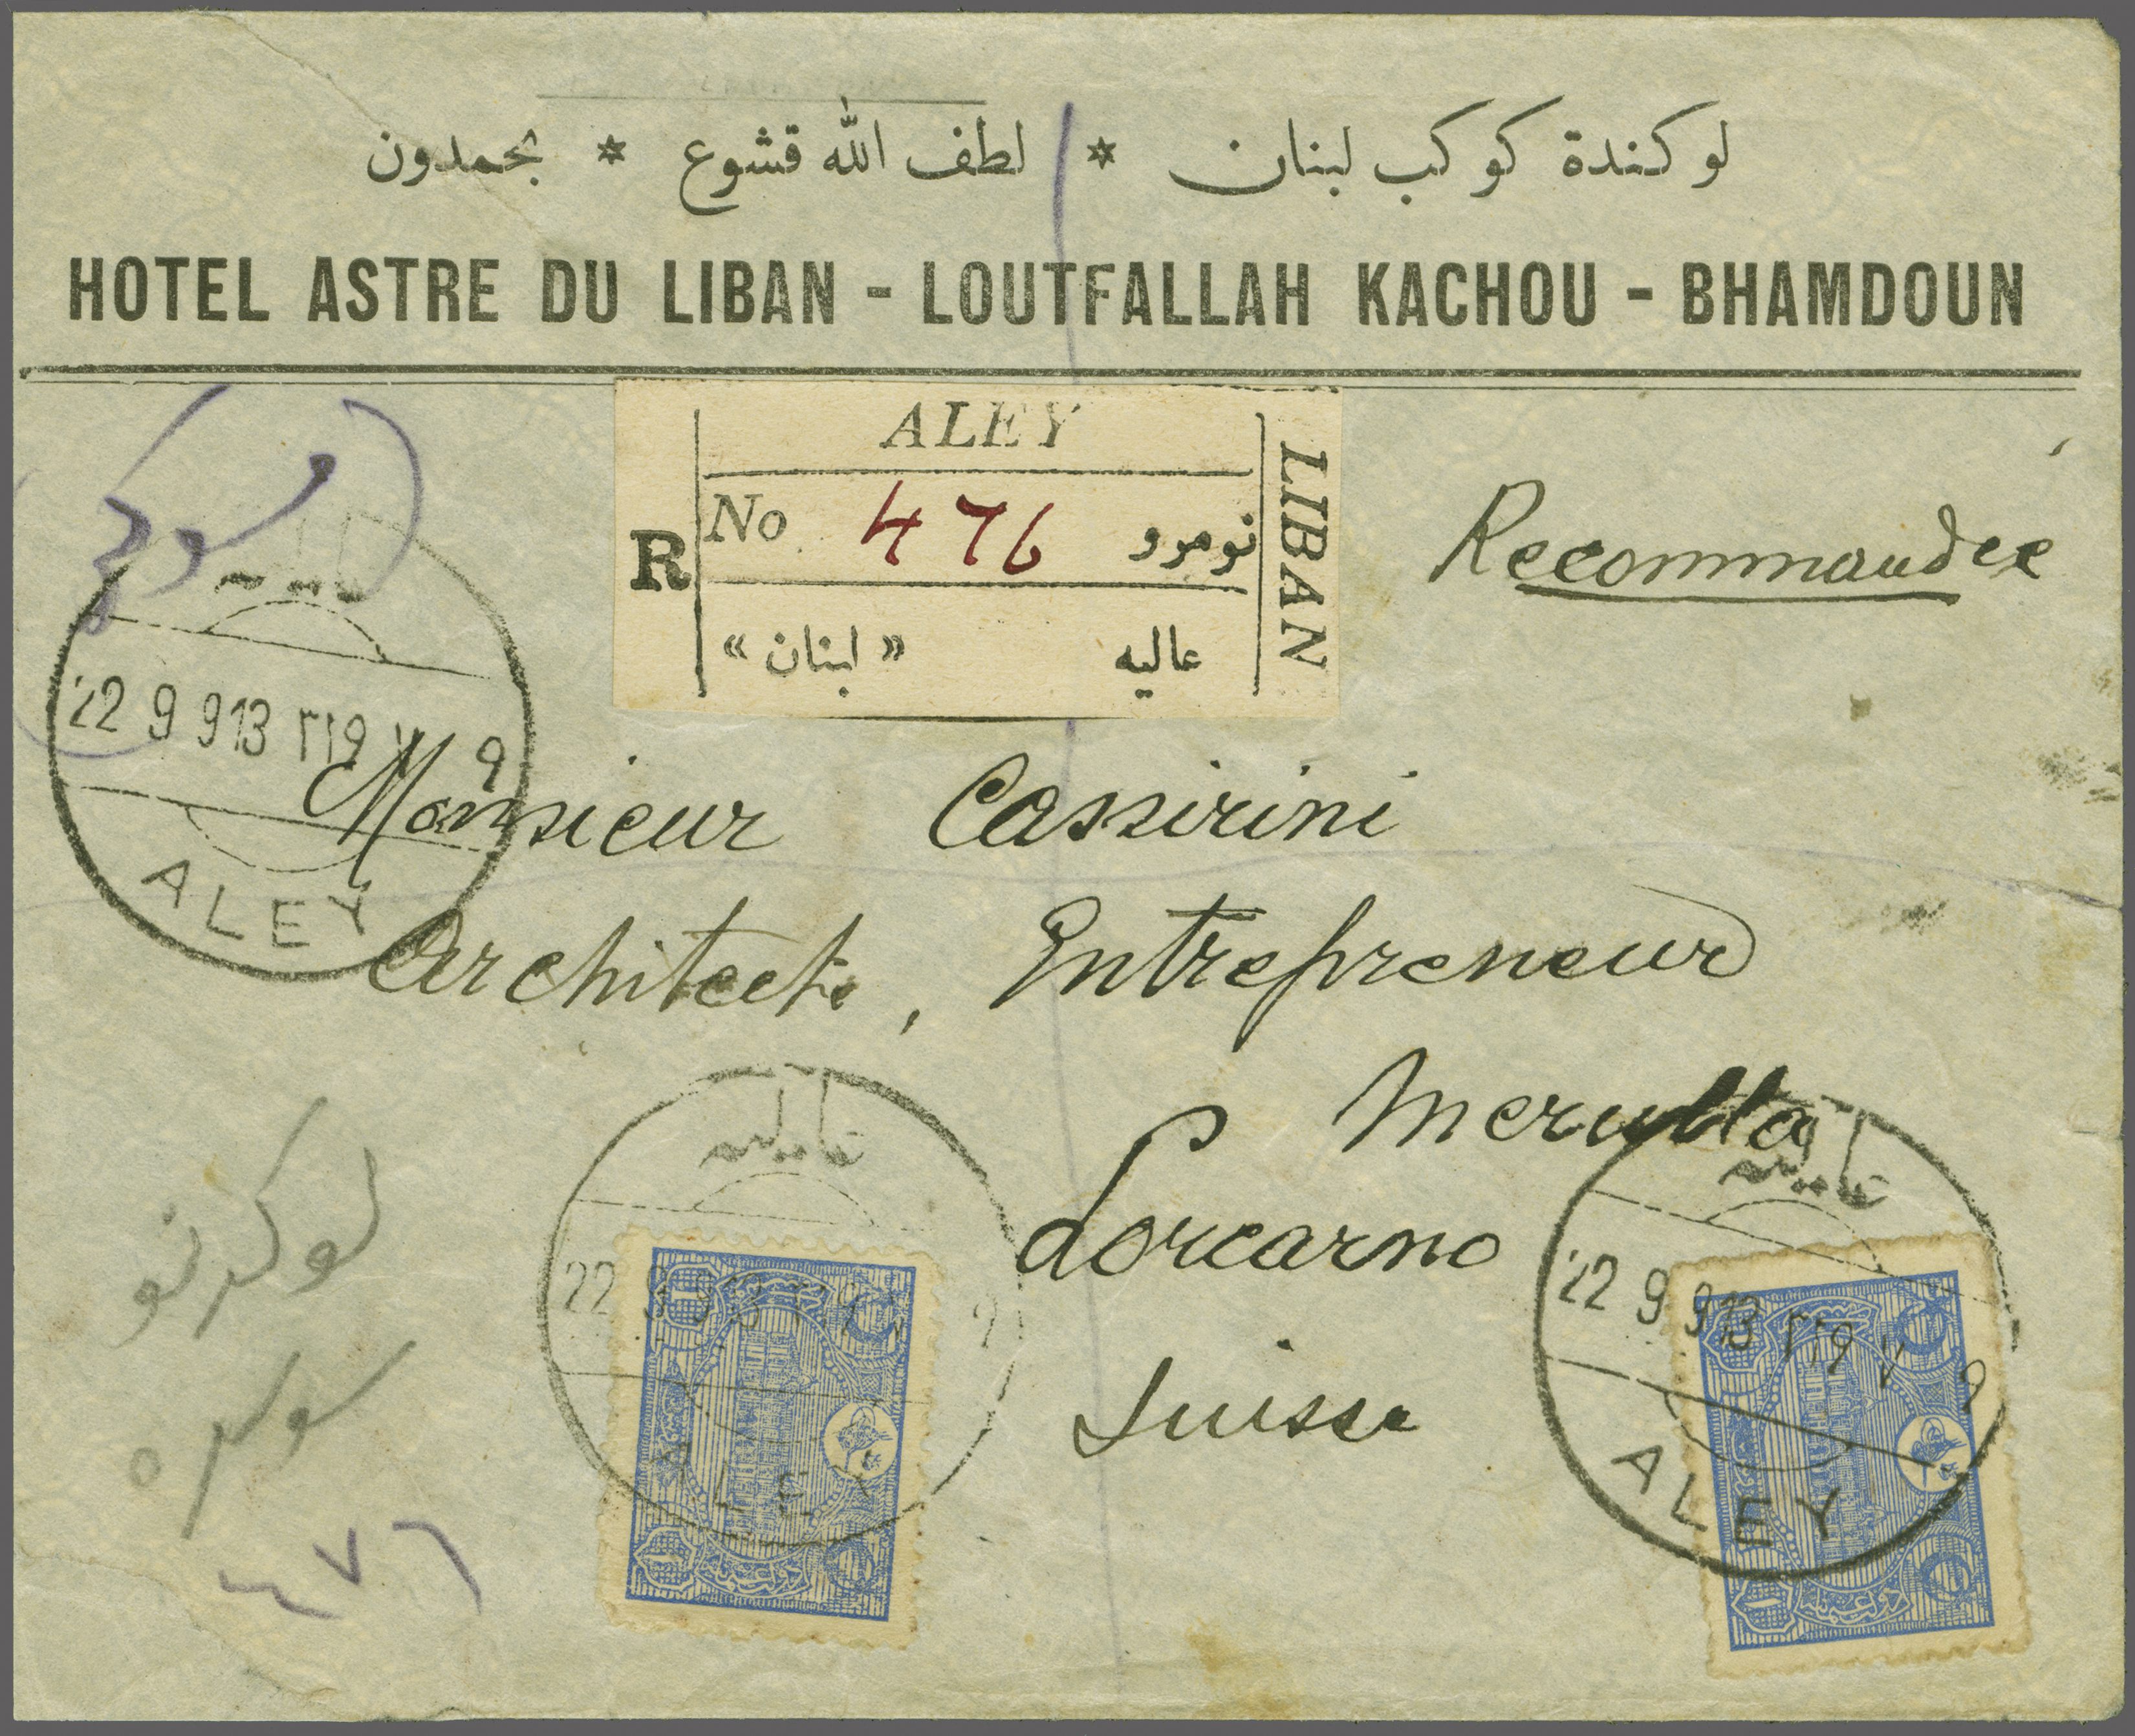 لوكندة كوكب لبنان * لطف الله قشوع * بحمدون
HOTEL ASTRE DU LIBAN - LOUTFALLAH KACHOU - BHAMDOUN
ALEY
R No 476 نومرو LIBAN
عاليه « لبنان »
Recommandée
عاليه
22 9 913 ٩ ٧ ٣٢٩
ALEY
Monsieur Cassirini
Architecte, Entrepreneur
Lorcarno
Suisse
عاليه
22 9 913
ALEY
عاليه
22 9 913 ٩ ٧ ٣٢٩
ALEY
لوكرنو
٤٧٦